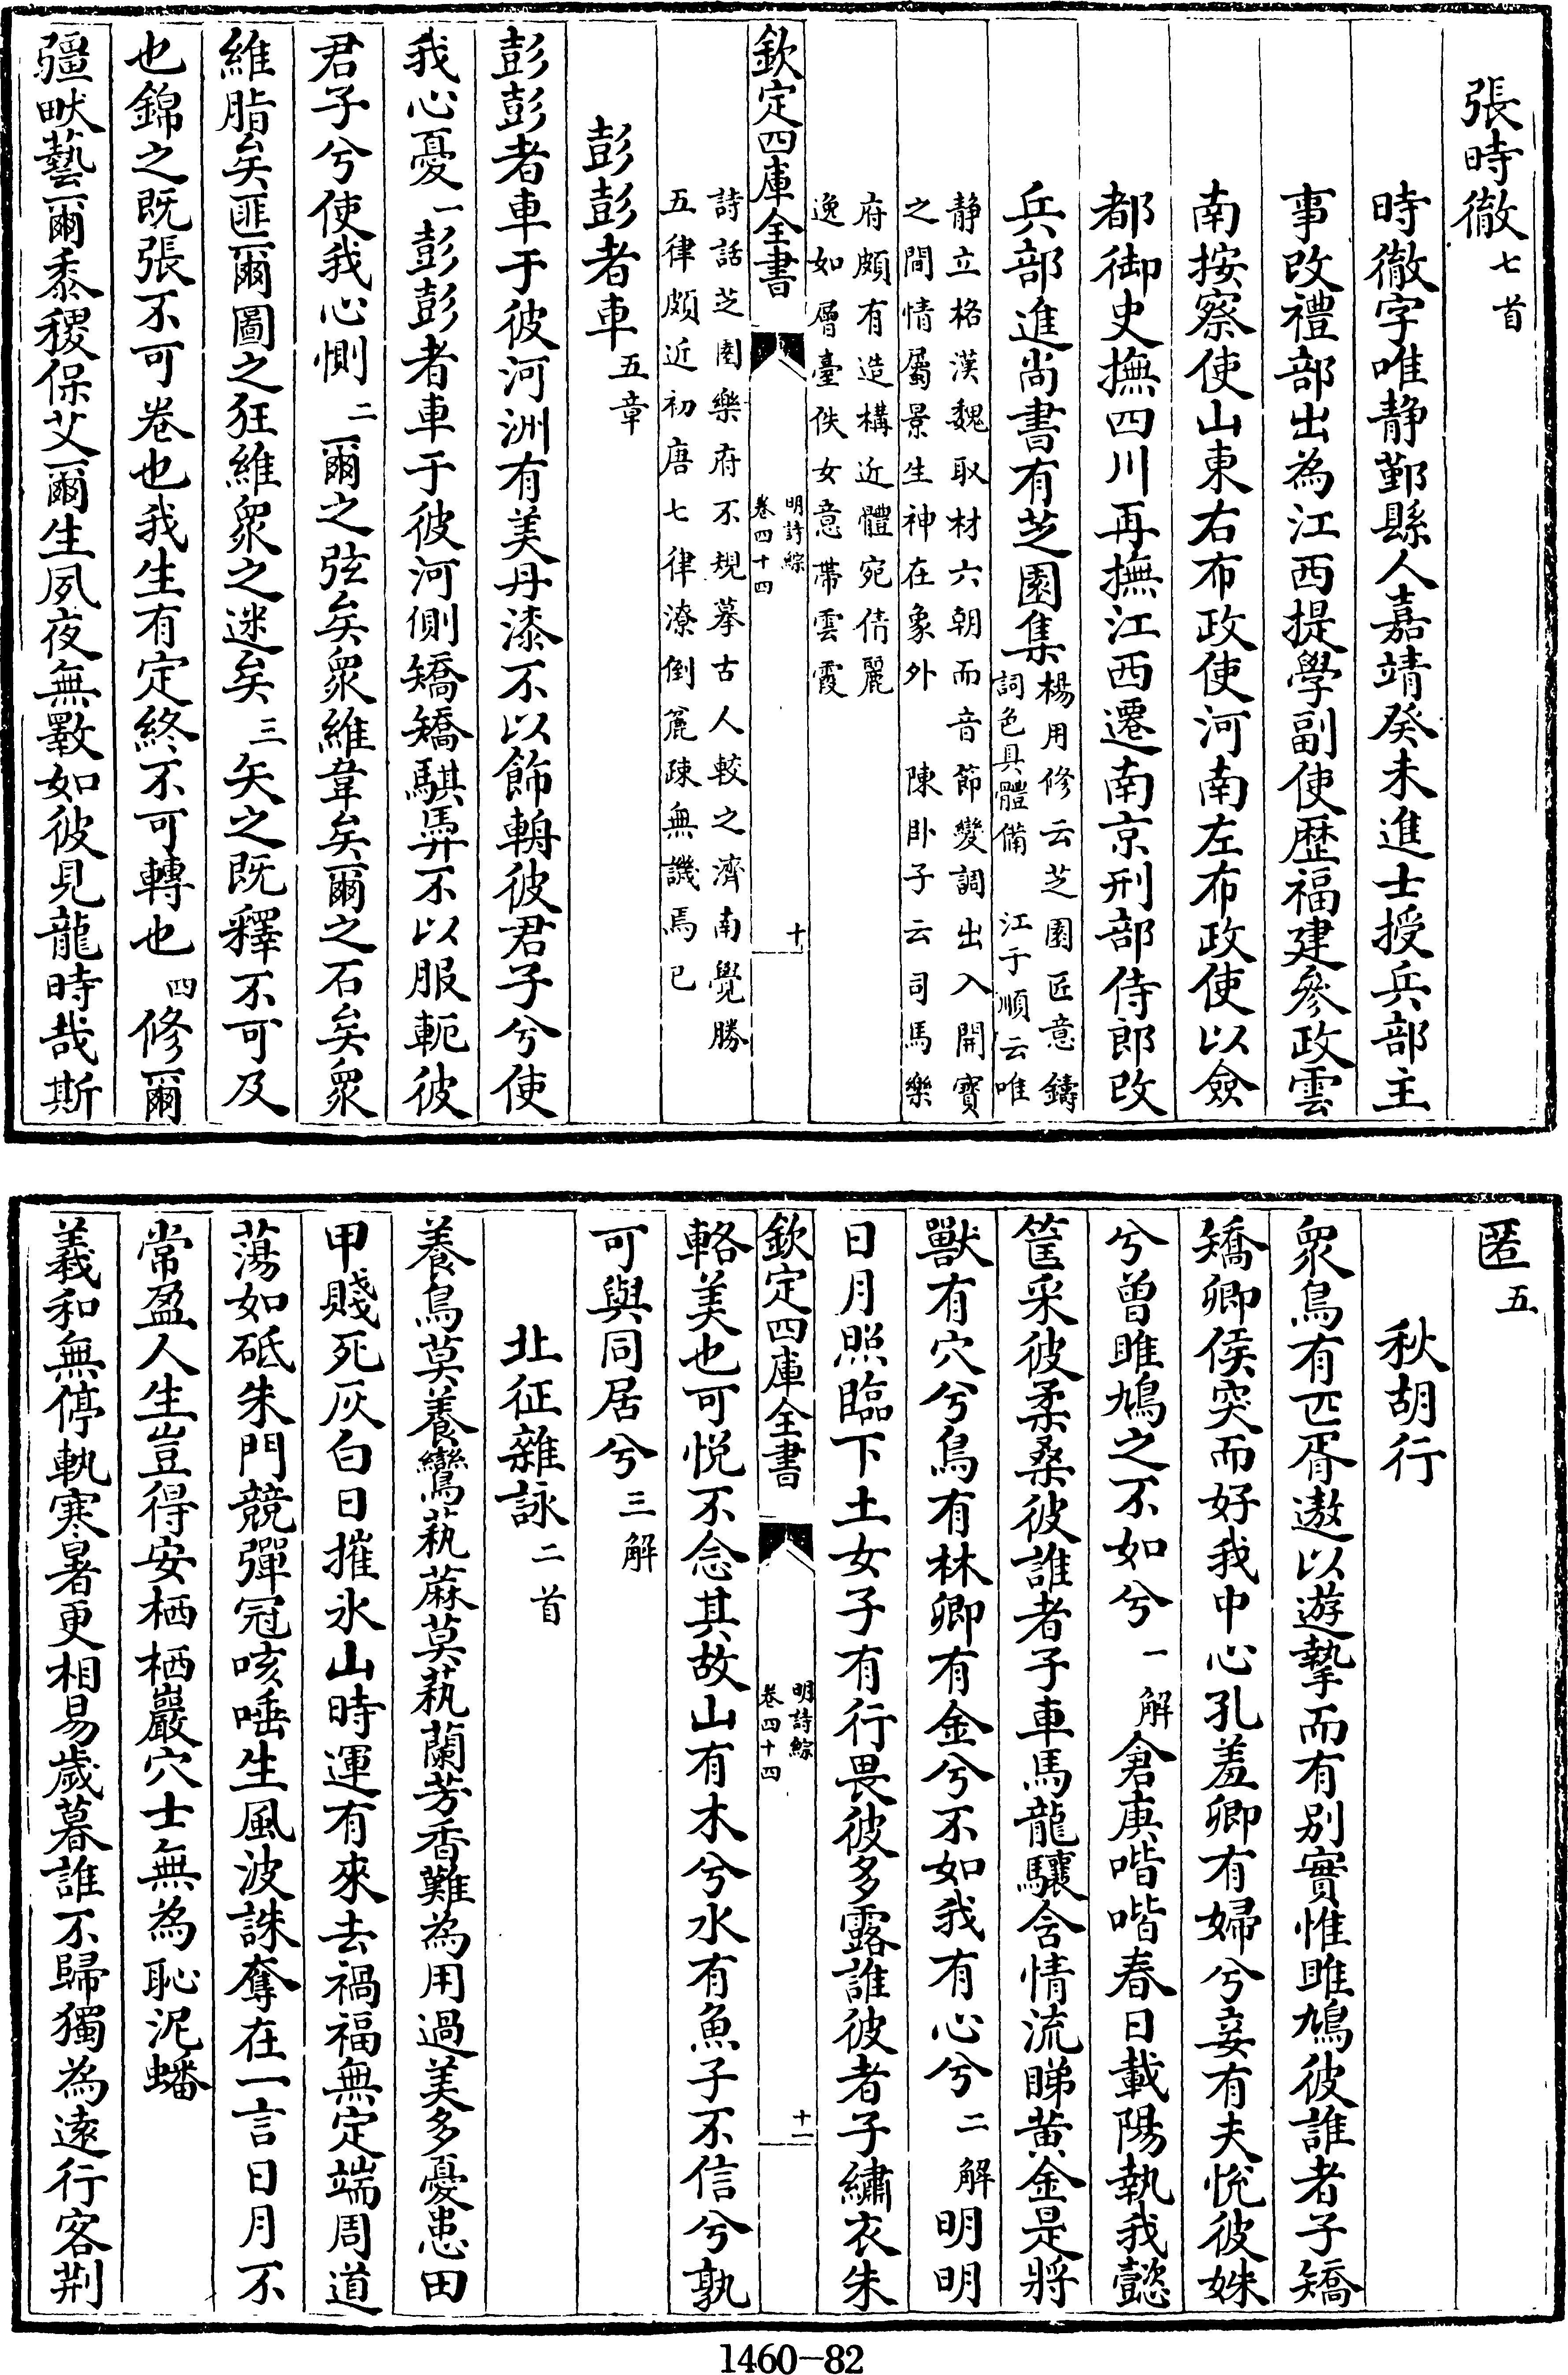 張時徹七首
時徹字唯静鄞縣人嘉靖癸未進士授兵部主
事改禮部出為江西提學副使歴福建參政雲
南按察使山東右布政使河南左布政使以僉
都御史撫四川再撫江西遷南京刑部侍郎改
兵部進尚書有芝園集楊用修云芝園匠意鑄
詞色具體備　江于順云唯
静立格漢魏取材六朝而音節變調出入開寳
之間情屬景生神在象外　陳卧子云司馬樂
府頗有造構近體宛倩麗
逸如層臺佚女意帶雲霞
欽定四庫全書
明詩綜
卷四十四
十
詩話芝園樂府不規摹古人較之濟南覺勝
五律頗近初唐七律潦倒麄疎無譏焉已
彭彭者車五章
彭彭者車于彼河洲有美丹漆不以飾輈彼君子兮使
我心憂一彭彭者車于彼河側矯矯騏馵不以服軛彼
君子兮使我心惻二爾之弦矣衆維韋矣爾之石矣衆
維脂矣匪爾圖之狂維衆之迷矣三矢之既釋不可及
也錦之既張不可卷也我生有定終不可轉也四修爾
疆畎藝爾黍稷保艾爾生夙夜無斁如彼見龍時哉斯
匿五
秋胡行
衆鳥有匹胥遨以遊摯而有别實惟雎鳩彼誰者子矯
矯卿侯突而好我中心孔羞卿有婦兮妾有夫悦彼姝
兮曾雎鳩之不如兮一解倉庚喈喈春日載陽執我懿
筐采彼柔桑彼誰者子車馬龍驤含情流睇黄金是將
獸有穴兮鳥有林卿有金兮不如我有心兮二解明明
日月照臨下土女子有行畏彼多露誰彼者子繡衣朱
欽定四庫全書
明詩綜
卷四十四
十一
輅美也可悦不念其故山有木兮水有魚子不信兮孰
可與同居兮三解
北征雜詠二首
養鳥莫養鸞蓺蔴莫蓺蘭芳香難為用過美多憂患田
甲賤死灰白日摧氷山時運有來去禍福無定端周道
蕩如砥朱門競彈冠咳唾生風波誅奪在一言日月不
常盈人生豈得安栖栖巖穴士無為恥泥蟠
羲和無停軌寒暑更相易歲暮誰不歸獨為遠行客荆
1460-82